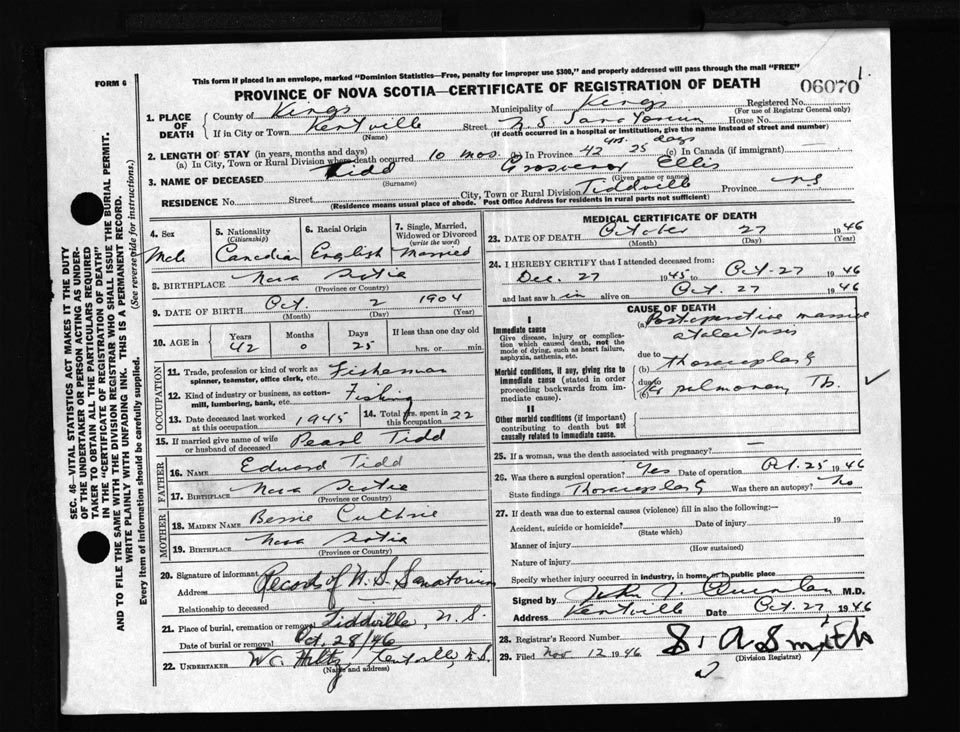 FORM 6
This form if placed in an envelope, marked "Dominion Statistics—Free, penalty for improper use $300," and properly addressed will pass through the mail "FREE"
PROVINCE OF NOVA SCOTIA—CERTIFICATE OF REGISTRATION OF DEATH
06070
1. PLACE OF DEATH
County of Kings Municipality of Kings Registered No.
(For use of Registrar General only)
If in City or Town Kentville Street N.S. Sanatorium House No.
(Name) (If death occurred in a hospital or institution, give the name instead of street and number)
2. LENGTH OF STAY (in years, months and days)
(a) In City, Town or Rural Division where death occurred 10 mos. (b) In Province 42 yrs. 25 days (c) In Canada (if immigrant)
3. NAME OF DECEASED Tidd Grosvenor Ellis
(Surname) (Given name or names)
RESIDENCE No. Street City, Town or Rural Division Tiddville Province NS
(Residence means usual place of abode. Post Office Address for residents in rural parts not sufficient)
4. Sex Male
5. Nationality (Citizenship) Canadian
6. Racial Origin English
7. Single, Married, Widowed or Divorced (write the word) Married
8. BIRTHPLACE Nova Scotia
(Province or Country)
9. DATE OF BIRTH Oct. 2 1904
(Month) (Day) (Year)
10. AGE in Years 42 Months 0 Days 25 If less than one day old hrs. or min.
OCCUPATION
11. Trade, profession or kind of work as spinner, teamster, office clerk, etc. Fisherman
12. Kind of industry or business, as cotton-mill, lumbering, bank, etc. Fishing
13. Date deceased last worked at this occupation 1945 14. Total yrs. spent in this occupation 22
15. If married give name of wife or husband of deceased Pearl Tidd
FATHER
16. NAME Edward Tidd
17. BIRTHPLACE Nova Scotia
(Province or Country)
MOTHER
18. MAIDEN NAME Bessie Guthrie
19. BIRTHPLACE Nova Scotia
(Province or Country)
20. Signature of informant Records of N.S. Sanatorium
Address
Relationship to deceased
21. Place of burial, cremation or removal Tiddville, N.S.
Date of burial or removal Oct. 28/46
22. UNDERTAKER W.C. Hiltz, Kentville, N.S.
(Name and address)
MEDICAL CERTIFICATE OF DEATH
23. DATE OF DEATH October 27 1946
(Month) (Day) (Year)
24. I HEREBY CERTIFY that I attended deceased from:
Dec. 27 1945 to Oct. 27 1946
and last saw him alive on Oct. 27 1946
CAUSE OF DEATH
I
Immediate cause
Give disease, injury or complication which caused death, not the mode of dying, such as heart failure, asphyxia, asthenia, etc.
(a) Postoperative massive atelectasis
due to
Morbid conditions, if any, giving rise to immediate cause (stated in order proceeding backwards from immediate cause).
(b) Thoracoplasty
due to
(c) pulmonary Tb.
II
Other morbid conditions (if important) contributing to death but not causally related to immediate cause.
25. If a woman, was the death associated with pregnancy? —
26. Was there surgical operation? Yes Date of operation Oct. 25 1946
State findings Thoracoplasty Was there an autopsy? No
27. If death was due to external causes (violence) fill in also the following:—
Accident, suicide or homicide? Date of injury 19
(State which)
Manner of injury
(How sustained)
Nature of injury
Specify whether injury occurred in industry, in home, or in public place
Signed by John J. Quinlan M.D.
Address Kentville Date Oct. 27 1946
28. Registrar's Record Number
29. Filed Nov 12 1946 S. A Smith
(Division Registrar)
SEC. 46—VITAL STATISTICS ACT MAKES IT THE DUTY
OF THE UNDERTAKER OR PERSON ACTING AS UNDER-
TAKER TO OBTAIN ALL THE PARTICULARS REQUIRED
IN THE "CERTIFICATE OF REGISTRATION OF DEATH"
AND TO FILE THE SAME WITH THE DIVISION REGISTRAR WHO SHALL ISSUE THE BURIAL PERMIT.
WRITE PLAINLY WITH UNFADING INK. THIS IS A PERMANENT RECORD.
Every item of information should be carefully supplied. (See reverse side for instructions.)